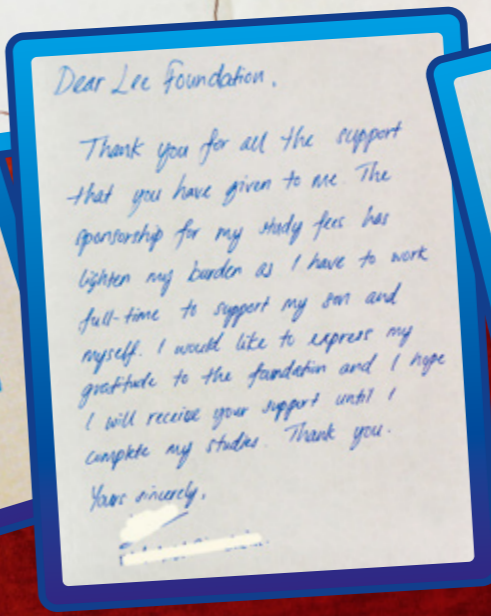 Dear Lee Foundation,
Thank you for all the support
that you have given to me. The
sponsorship for my study fees has
lighten my burden as I have to work
full-time to support my son and
myself. I would like to express my
gratitude to the foundation and I hope
I will receive your support until I
complete my studies. Thank you.
Yours sincerely,